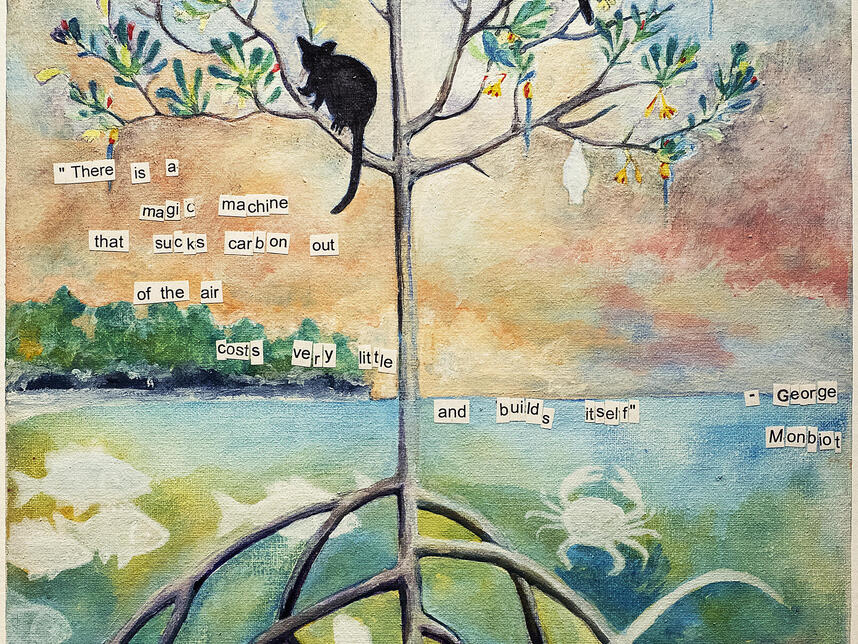 "There is a
magic machine
that sucks carbon out
of the air
costs very little
and builds itself"
- George
Monbiot